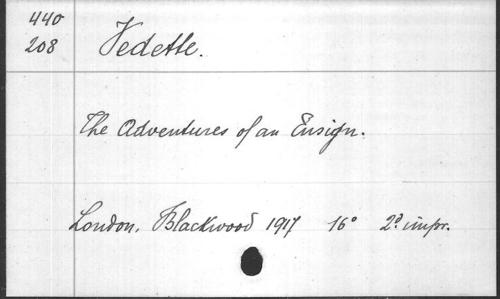 440
208
Vedette.
The Adventures of an Ensign.
London, Blackwood 1917 16° 2d impr.